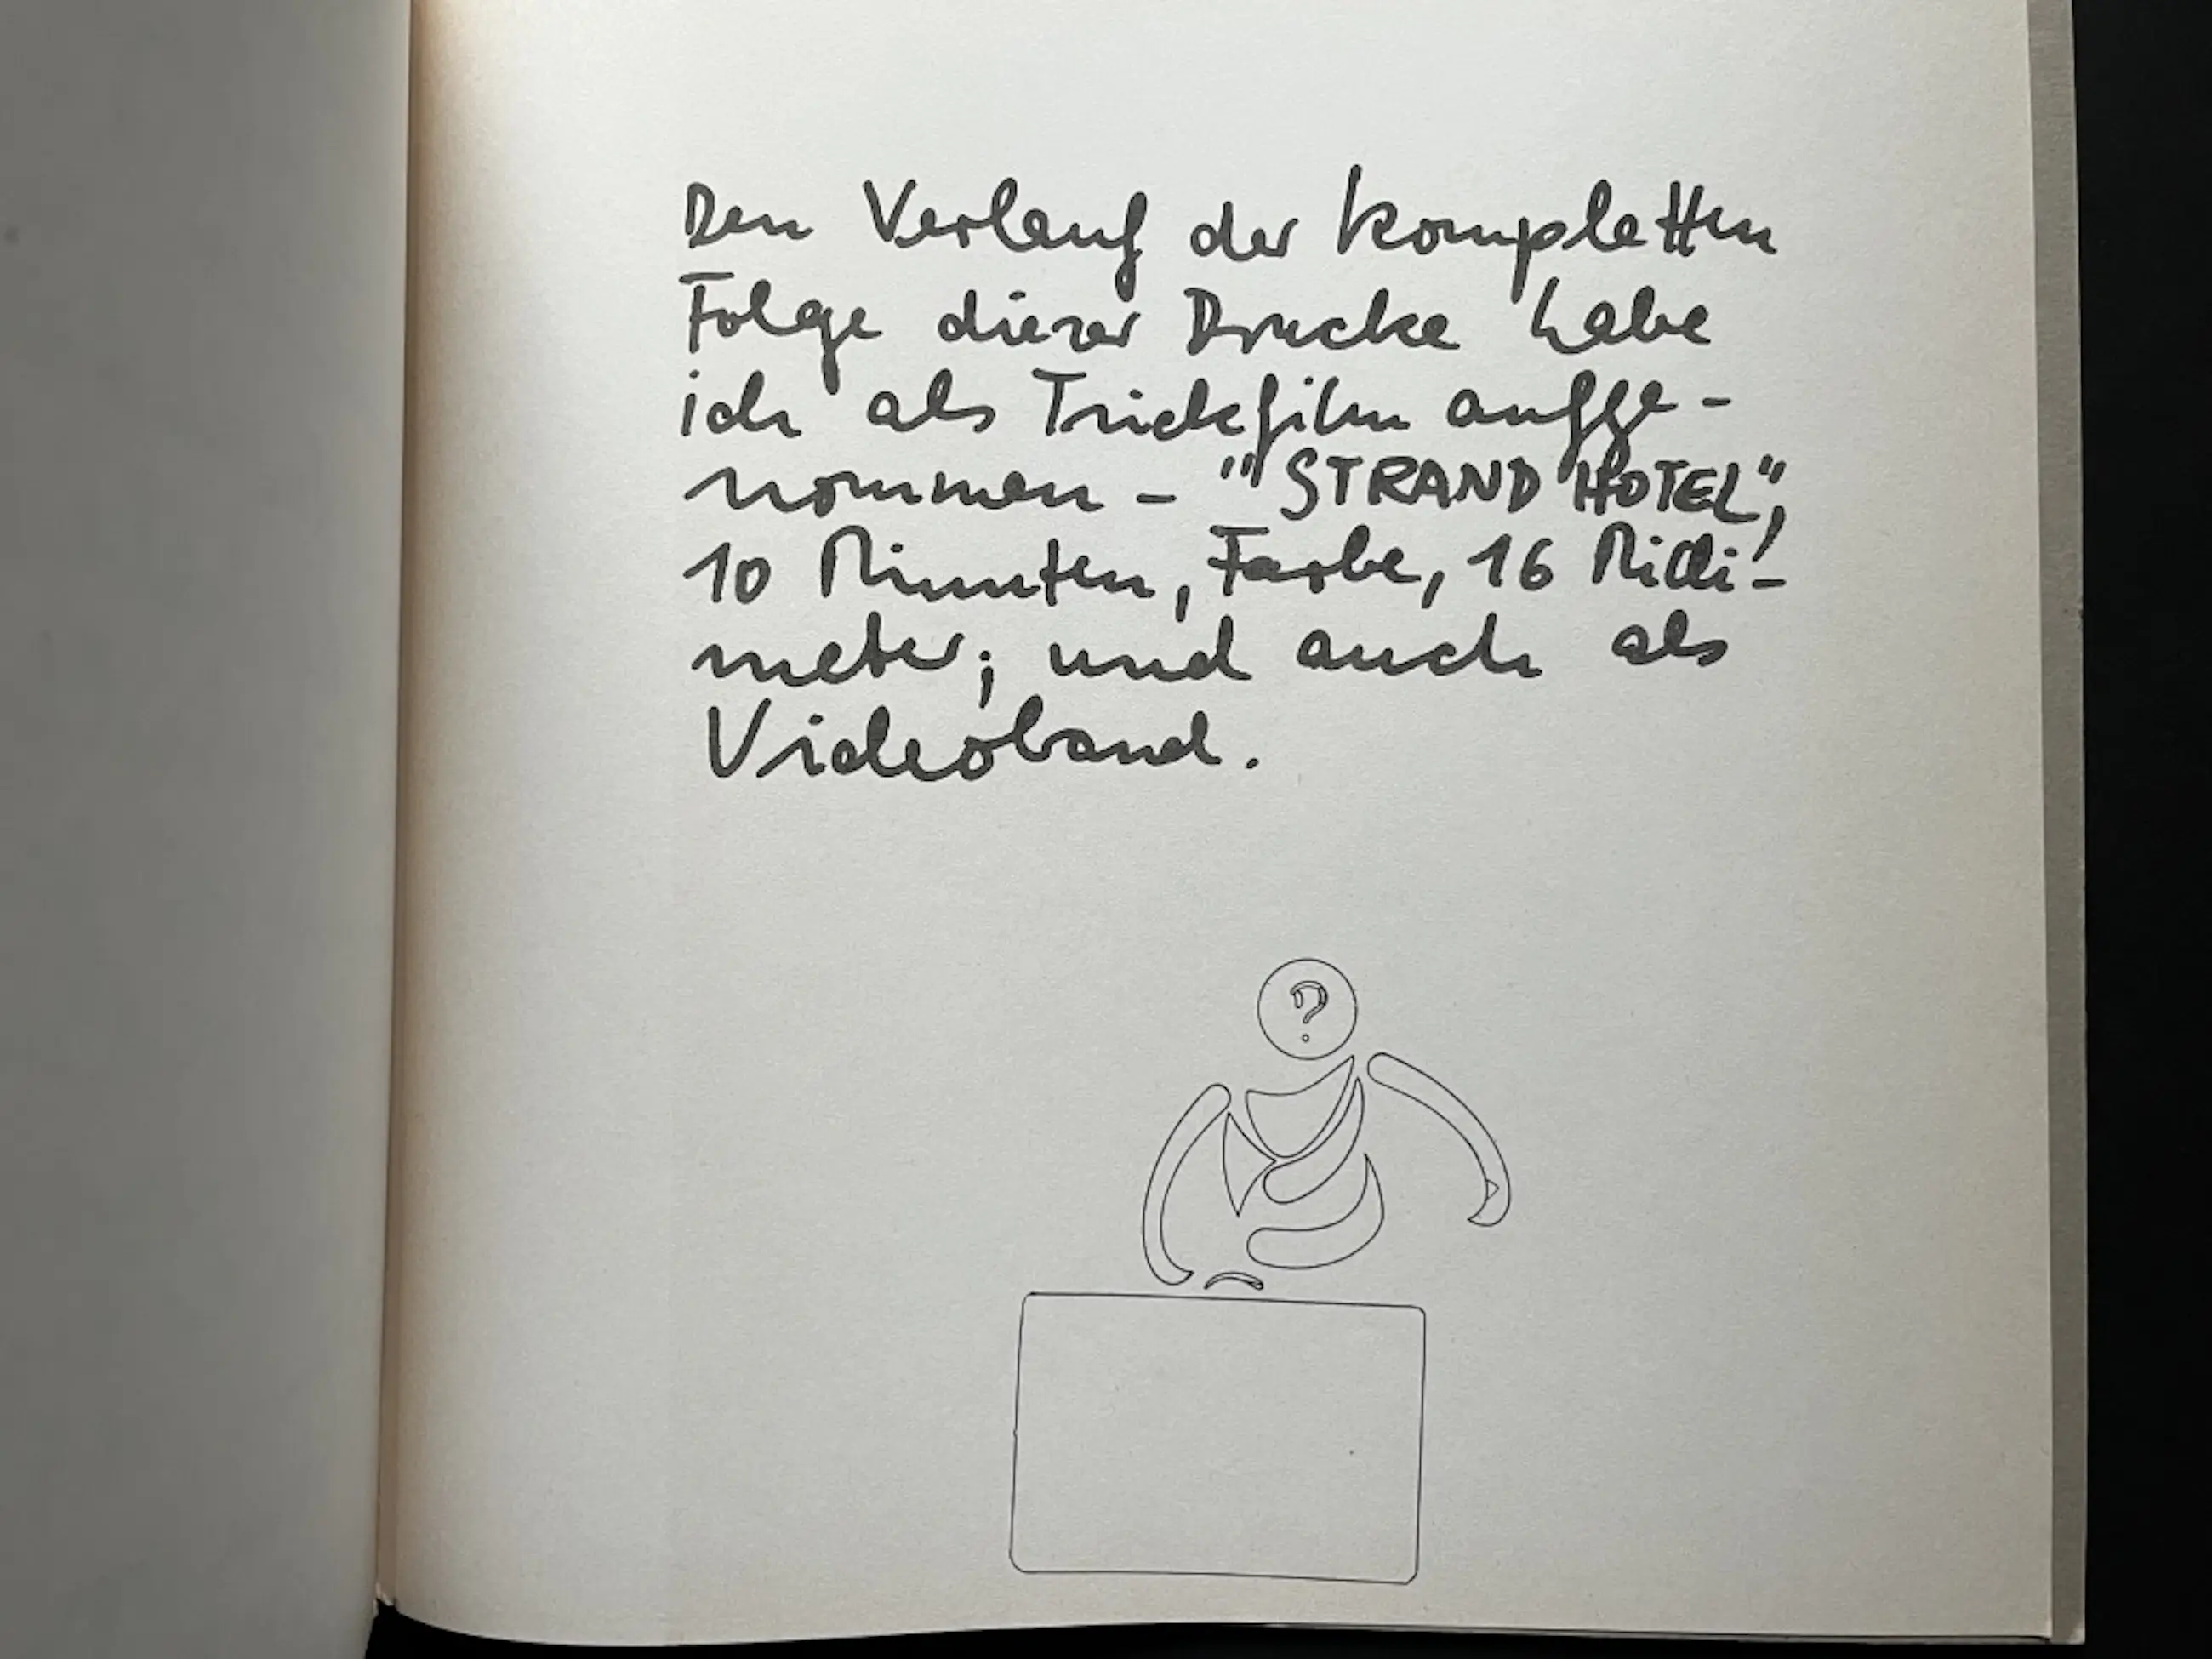 Den Verlauf der kompletten
Folge dieser Drucke habe
ich als Trickfilm aufge-
nommen - "STRAND HOTEL",
10 Minuten, Farbe, 16 Milli-
meter; und auch als
Videoband.
?